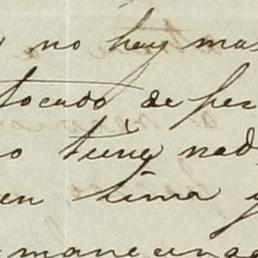 no hay mas
tocado de per
o tiene nad
en Lima y